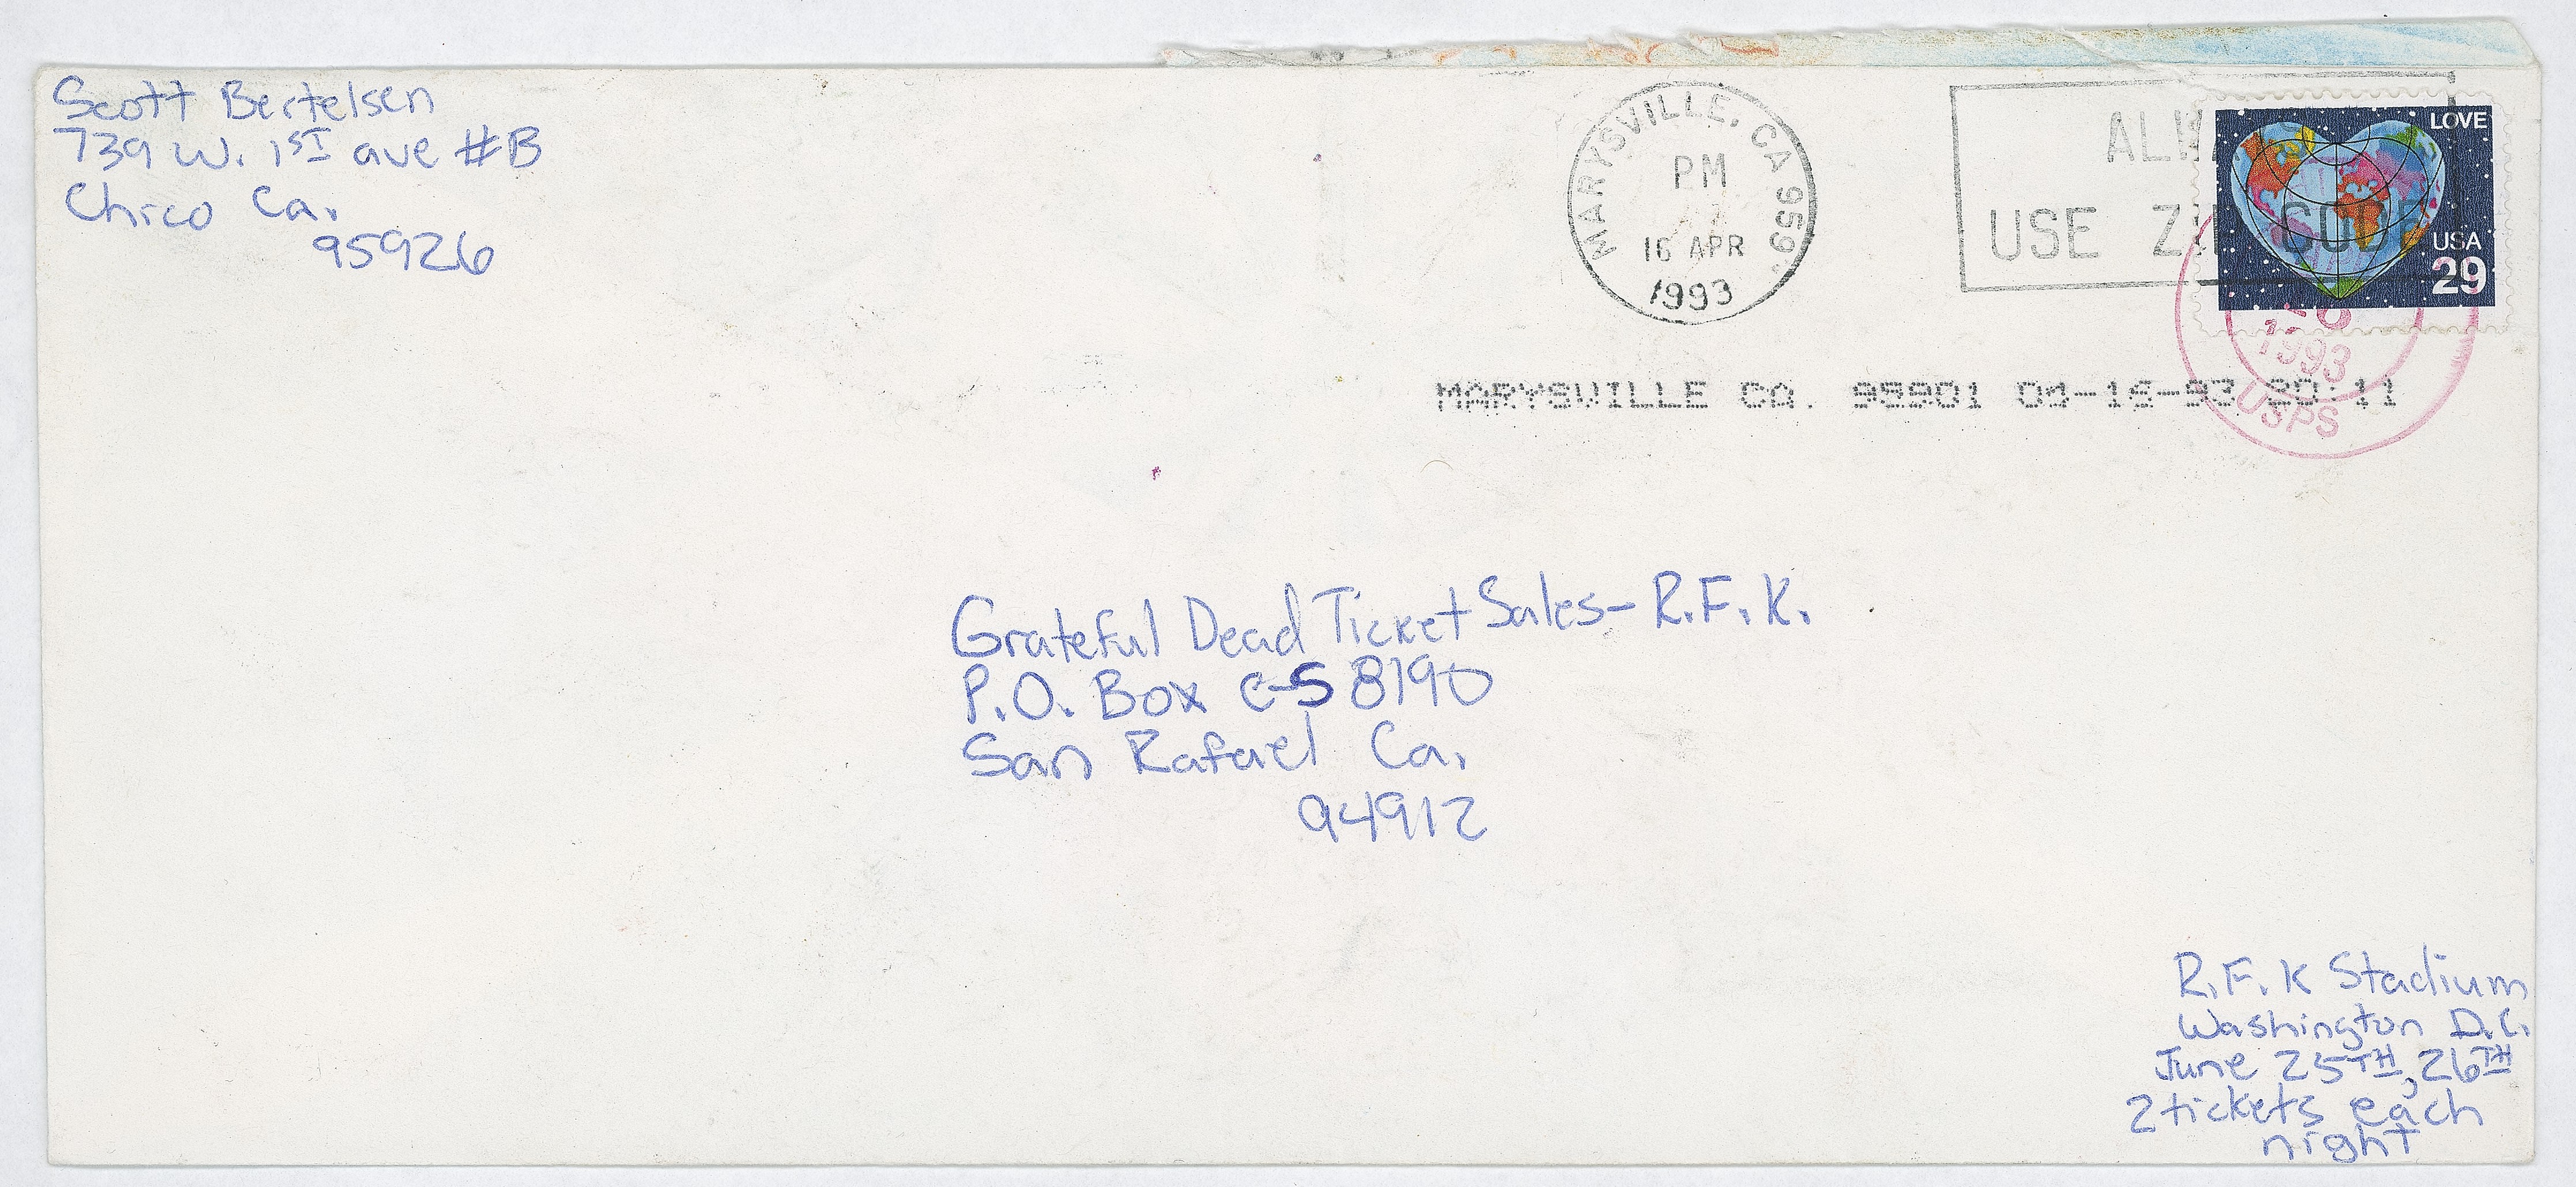 Scott Bertelsen
739 W. 1ST ave #B
Chico Ca.
95926
MARYSVILLE, CA 959
PM
16 APR
1993
USE ZIP CODE
LOVE
USA
29
1993
USPS
MARYSVILLE CA. 95901 04-16-93 20:11
Grateful Dead Ticket Sales - R.F.K.
P.O. Box C-S 8190
San Rafael Ca.
94912
R.F.K Stadium
Washington D.C.
June 25TH, 26TH
2 tickets each
night